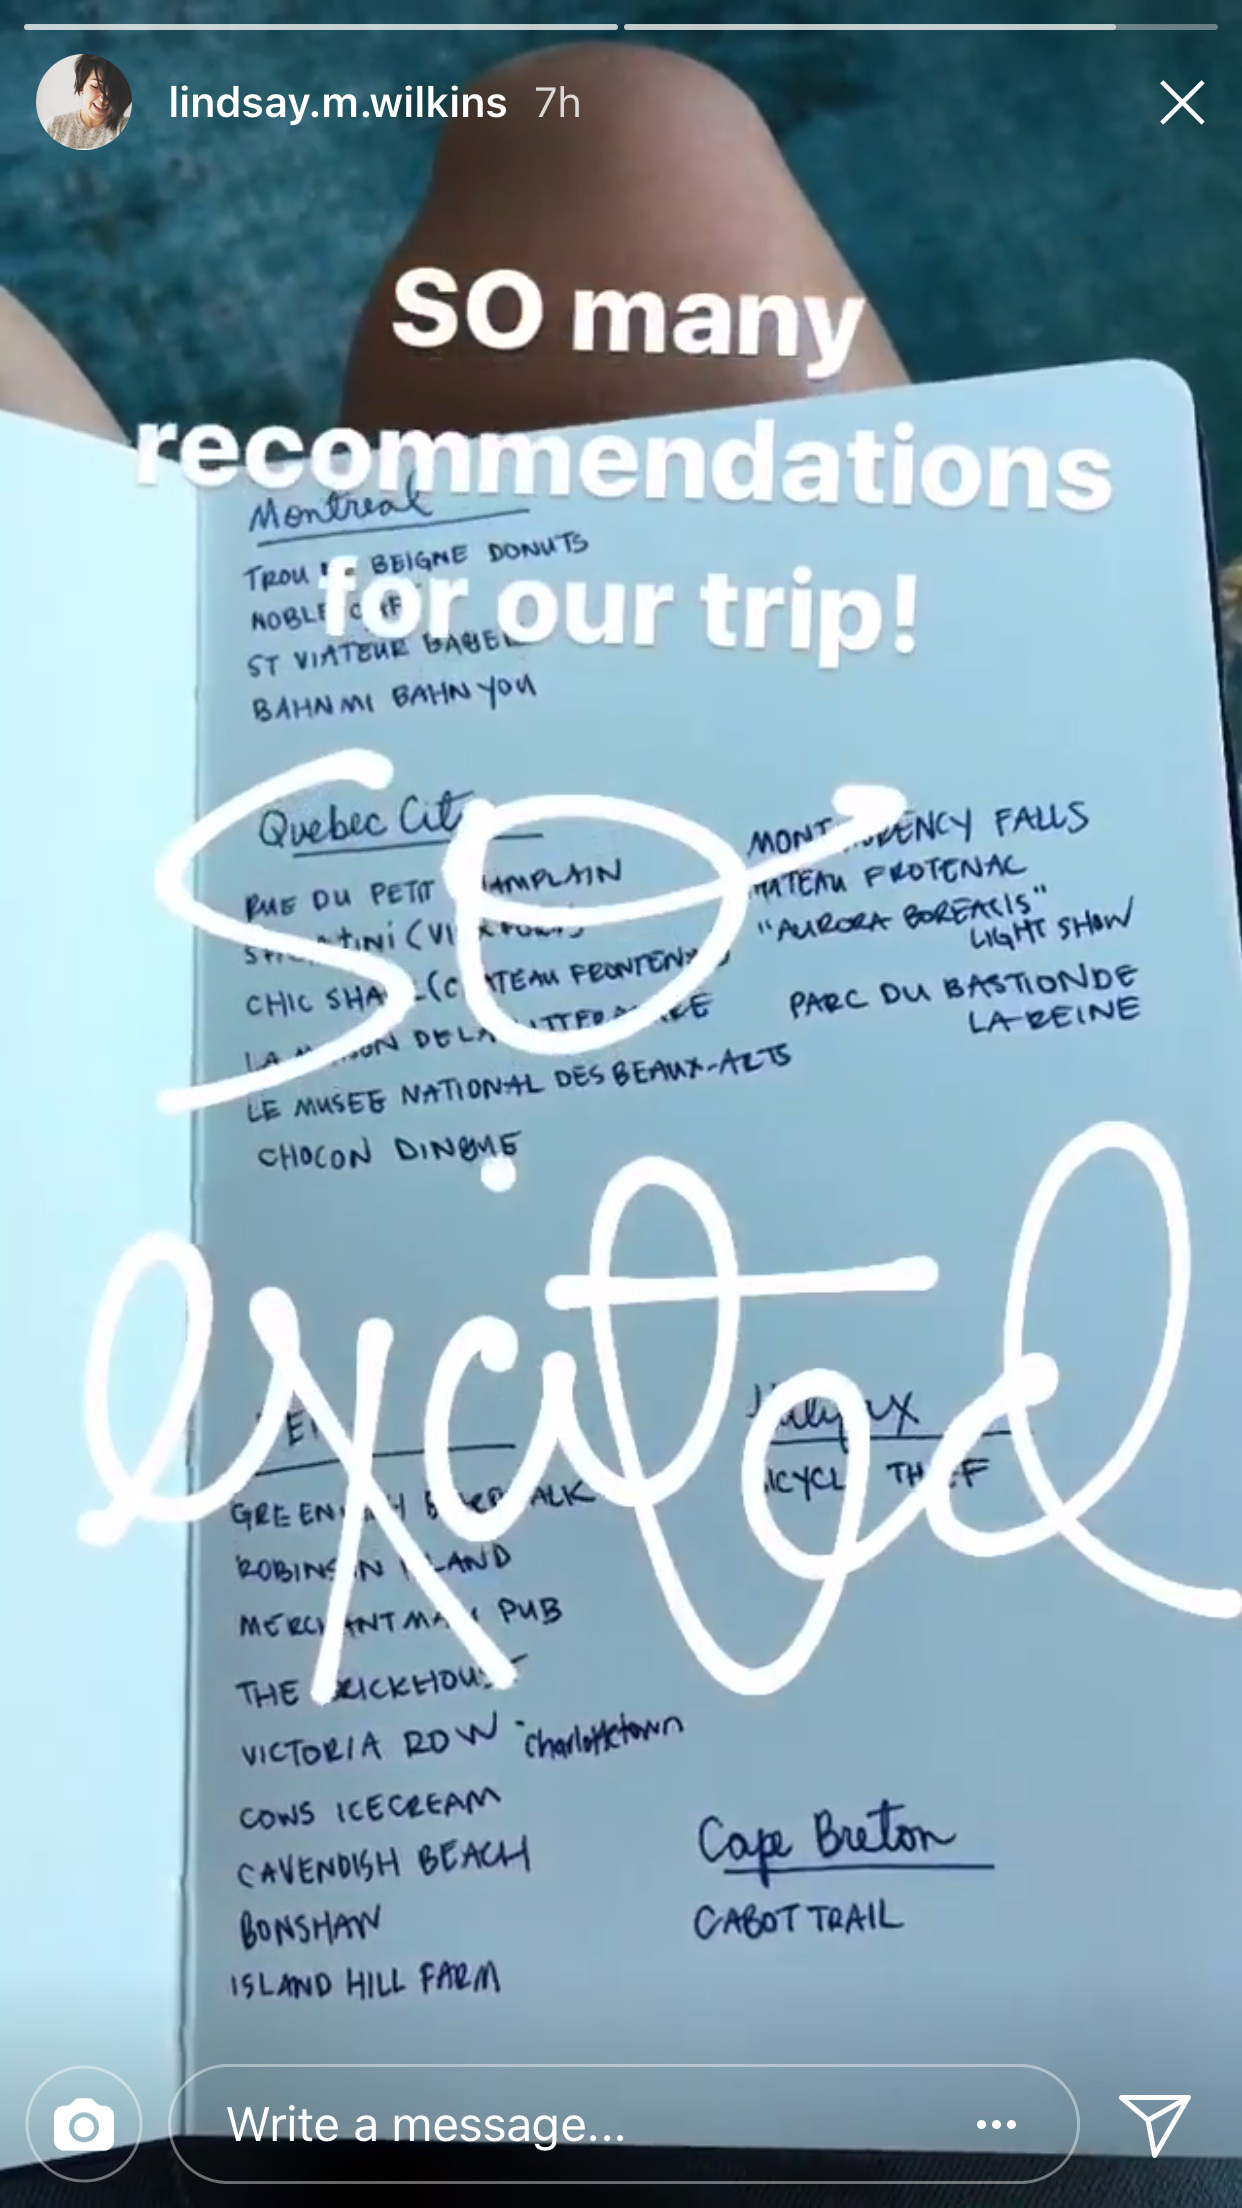 lindsay.m.wilkins 7h
SO many
recommendations
for our trip!
Montreal
TROU BEIGNE DONUTS
NOBLE
ST VIATEUR BAGEL
BAHN MI BAHN YOU
SO
Quebec City
RUE DU PETIT CHAMPLAIN
CHIC SHA
LA MAISON DE LA LITTERATURE
LE MUSEE NATIONAL DES BEAUX-ARTS
CHOCON DINGUE
MONTMORENCY FALLS
CHATEAU FROTENAC
"AURORA BOREALIS"
LIGHT SHOW
PARC DU BASTION DE
LA REINE
excited
GREENWICH BOARDWALK
ROBINSON ISLAND
MERCHANTMAN PUB
THE BRICKHOUSE
VICTORIA ROW - Charlottetown
COWS ICECREAM
CAVENDISH BEACH
BONSHAW
ISLAND HILL FARM
Halifax
BICYCLE THIEF
Cape Breton
CABOT TRAIL
Write a message...